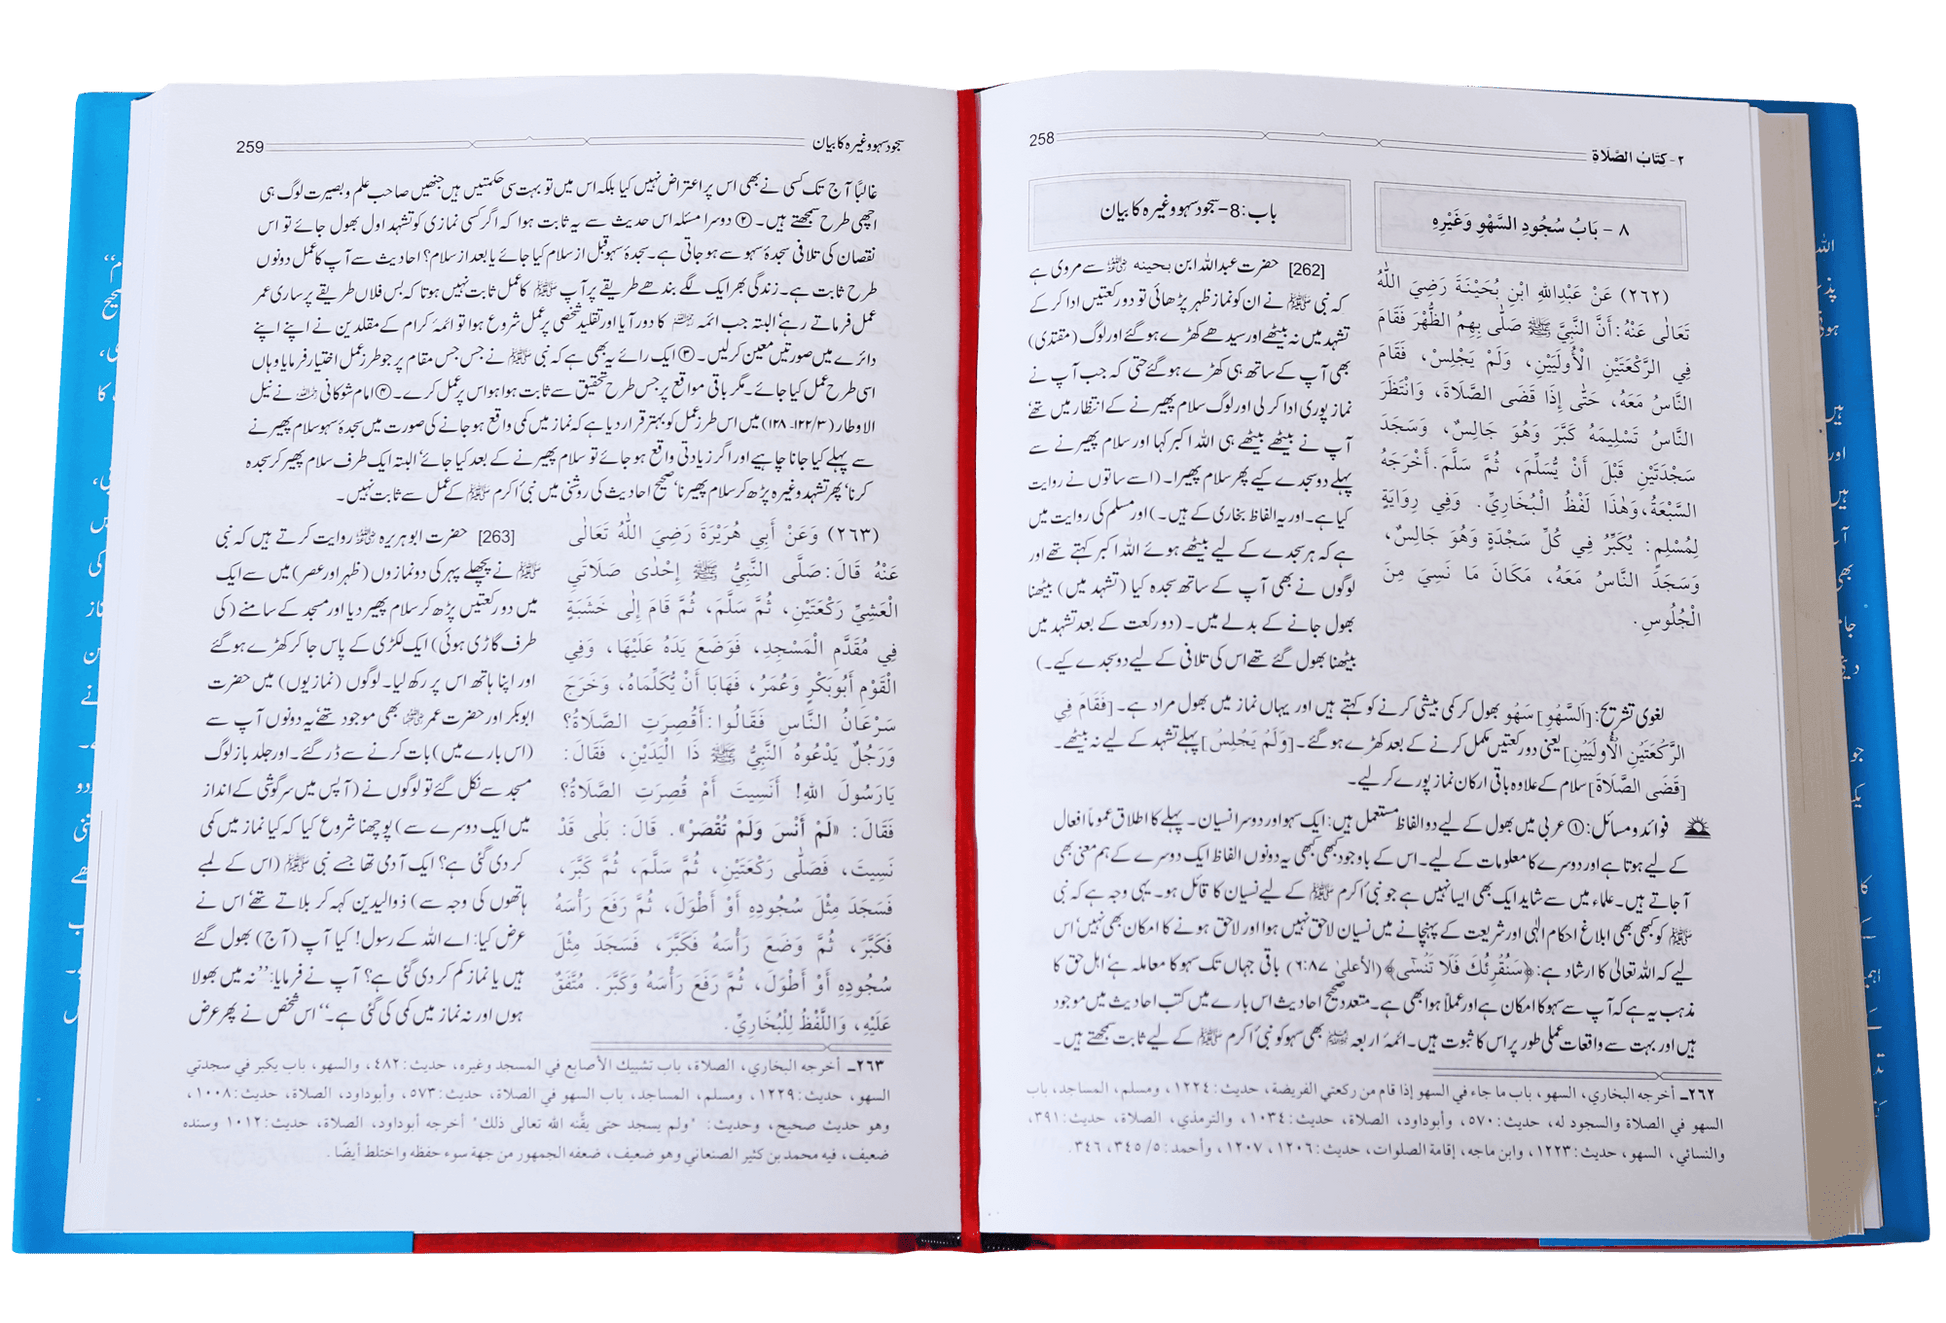 ٢- كتاب الصَّلَاةِ
258
٨ - بَابُ سُجُودِ السَّهْوِ وَغَيْرِهِ
(٢٦٢) عَنْ عَبْدِاللهِ ابْنِ بُحَيْنَةَ رَضِيَ اللهُ
تَعَالَى عَنْهُ: أَنَّ النَّبِيَّ ﷺ صَلَّى بِهِمُ الظُّهْرَ فَقَامَ
فِي الرَّكْعَتَيْنِ الْأُولَيَيْنِ، وَلَمْ يَجْلِسْ، فَقَامَ
النَّاسُ مَعَهُ، حَتَّى إِذَا قَضَى الصَّلَاةَ، وَانْتَظَرَ
النَّاسُ تَسْلِيمَهُ كَبَّرَ وَهُوَ جَالِسٌ، وَسَجَدَ
سَجْدَتَيْنِ قَبْلَ أَنْ يُسَلِّمَ، ثُمَّ سَلَّمَ. أَخْرَجَهُ
السَّبْعَةُ، وَهٰذَا لَفْظُ الْبُخَارِيِّ. وَفِي رِوَايَةٍ
لِمُسْلِمٍ: يُكَبِّرُ فِي كُلِّ سَجْدَةٍ وَهُوَ جَالِسٌ،
وَسَجَدَ النَّاسُ مَعَهُ، مَكَانَ مَا نَسِيَ مِنَ
الْجُلُوسِ.
باب: 8- سجود سہو وغیرہ کا بیان
[262] حضرت عبداللہ ابن بحینہ ؓ سے مروی ہے
کہ نبی ﷺ نے ان کو نماز ظہر پڑھائی تو دو رکعتیں ادا کر کے
تشہد میں نہ بیٹھے اور سیدھے کھڑے ہو گئے اور لوگ (مقتدی)
بھی آپ کے ساتھ ہی کھڑے ہو گئے حتی کہ جب آپ نے
نماز پوری ادا کر لی اور لوگ سلام پھیرنے کے انتظار میں تھے
آپ نے بیٹھے بیٹھے ہی اللہ اکبر کہا اور سلام پھیرنے سے
پہلے دو سجدے کیے پھر سلام پھیرا۔ (اسے ساتوں نے روایت
کیا ہے۔ اور یہ الفاظ بخاری کے ہیں۔) اور مسلم کی روایت میں
ہے کہ ہر سجدے کے لیے بیٹھے ہوئے اللہ اکبر کہتے تھے اور
لوگوں نے بھی آپ کے ساتھ سجدہ کیا (تشہد میں) بیٹھنا
بھول جانے کے بدلے میں۔ (دو رکعت کے بعد تشہد میں
بیٹھنا بھول گئے تھے اس کی تلافی کے لیے دو سجدے کیے۔)
لغوی تشریح: [اَلسَّهْوِ] سَهْو بھول کر کمی بیشی کرنے کو کہتے ہیں اور یہاں نماز میں بھول مراد ہے۔ [فَقَامَ فِي
الرَّكْعَتَيْنِ الْأُولَيَيْنِ] یعنی دو رکعتیں مکمل کرنے کے بعد کھڑے ہو گئے۔ [وَلَمْ يَجْلِسْ] پہلے تشہد کے لیے نہ بیٹھے۔
[قَضَى الصَّلَاةَ] سلام کے علاوہ باقی ارکان نماز پورے کر لیے۔
فوائد ومسائل: ① عربی میں بھول کے لیے دو الفاظ مستعمل ہیں: ایک سہو اور دوسرا نسیان۔ پہلے کا اطلاق عموماً افعال
کے لیے ہوتا ہے اور دوسرے کا معلومات کے لیے۔ اس کے باوجود کبھی کبھی یہ دونوں الفاظ ایک دوسرے کے ہم معنی بھی
آ جاتے ہیں۔ علماء میں سے شاید ایک بھی ایسا نہیں ہے جو نبی اکرم ﷺ کے لیے نسیان کا قائل ہو۔ یہی وجہ ہے کہ نبی
ﷺ کو کبھی بھی ابلاغ احکام الٰہی اور شریعت کے پہنچانے میں نسیان لاحق نہیں ہوا اور لاحق ہونے کا امکان بھی نہیں اس
لیے کہ اللہ تعالیٰ کا ارشاد ہے: ﴿سَنُقْرِئُكَ فَلَا تَنْسٰى﴾ (الأعلى ٨٧:٦) باقی جہاں تک سہو کا معاملہ ہے، اہل حق کا
مذہب یہ ہے کہ آپ سے سہو کا امکان ہے اور عملاً ہوا بھی ہے۔ متعدد صحیح احادیث اس بارے میں کتب احادیث میں موجود
ہیں اور بہت سے واقعات عملی طور پر اس کا ثبوت ہیں۔ ائمۂ اربعہ بھی سہو کو نبی اکرم ﷺ کے لیے ثابت سمجھتے ہیں۔
٢٦٢ـ أخرجه البخاري، السهو، باب ما جاء في السهو إذا قام من ركعتي الفريضة، حديث: ١٢٢٤، ومسلم، المساجد، باب
السهو في الصلاة والسجود له، حديث: ٥٧٠، وأبوداود، الصلاة، حديث: ١٠٣٤، والترمذي، الصلاة، حديث: ٣٩١،
والنسائي، السهو، حديث: ١٢٢٣، وابن ماجه، إقامة الصلوات، حديث: ١٢٠٦، ١٢٠٧، وأحمد: ٥/ ٣٤٥، ٣٤٦.
سجود سہو وغیرہ کا بیان
259
غالباً آج تک کسی نے بھی اس پر اعتراض نہیں کیا بلکہ اس میں تو بہت سی حکمتیں ہیں جنھیں صاحب علم و بصیرت لوگ ہی
اچھی طرح سمجھتے ہیں۔ ② دوسرا مسئلہ اس حدیث سے یہ ثابت ہوا کہ اگر کسی نمازی کو تشہد اول بھول جائے تو اس
نقصان کی تلافی سجدۂ سہو سے ہو جاتی ہے۔ سجدۂ سہو قبل از سلام کیا جائے یا بعد از سلام؟ احادیث سے آپ کا عمل دونوں
طرح ثابت ہے۔ زندگی بھر ایک لگے بندھے طریقے پر آپ ﷺ کا عمل ثابت نہیں ہوتا کہ بس فلاں طریقے پر ساری عمر
عمل فرماتے رہے، البتہ جب ائمہ کا دور آیا اور تقلید شخصی پر عمل شروع ہوا تو ائمۂ کرام کے مقلدین نے اپنے اپنے
دائرے میں صورتیں معین کر لیں۔ ③ ایک رائے یہ بھی ہے کہ نبی ﷺ نے جس جس مقام پر جو طرز عمل اختیار فرمایا وہاں
اسی طرح عمل کیا جائے۔ مگر باقی مواقع پر جس طرح تحقیق سے ثابت ہوا ہو اس پر عمل کرے۔ ④ امام شوکانی نے نیل
الاوطار (٣/ ١٢٢۔ ١٢٨) میں اس طرز عمل کو بہتر قرار دیا ہے کہ نماز میں کمی واقع ہو جانے کی صورت میں سجدۂ سہو سلام پھیرنے
سے پہلے کیا جانا چاہیے اور اگر زیادتی واقع ہو جائے تو سلام پھیرنے کے بعد کیا جائے، البتہ ایک طرف سلام پھیر کر سجدہ
کرنا، پھر تشہد وغیرہ پڑھ کر سلام پھیرنا، صحیح احادیث کی روشنی میں نبی اکرم ﷺ کے عمل سے ثابت نہیں۔
(٢٦٣) وَعَنْ أَبِي هُرَيْرَةَ رَضِيَ اللهُ تَعَالَى
عَنْهُ قَالَ: صَلَّى النَّبِيُّ ﷺ إِحْدٰى صَلَاتَيِ
الْعَشِيِّ رَكْعَتَيْنِ، ثُمَّ سَلَّمَ، ثُمَّ قَامَ إِلَى خَشَبَةٍ
فِي مُقَدَّمِ الْمَسْجِدِ، فَوَضَعَ يَدَهُ عَلَيْهَا، وَفِي
الْقَوْمِ أَبُوبَكْرٍ وَعُمَرُ، فَهَابَا أَنْ يُكَلِّمَاهُ، وَخَرَجَ
سَرْعَانُ النَّاسِ فَقَالُوا: أَقُصِرَتِ الصَّلَاةُ؟
وَرَجُلٌ يَدْعُوهُ النَّبِيُّ ﷺ ذَا الْيَدَيْنِ، فَقَالَ:
يَارَسُولَ اللهِ! أَنَسِيتَ أَمْ قُصِرَتِ الصَّلَاةُ؟
فَقَالَ: «لَمْ أَنْسَ وَلَمْ تُقْصَرْ». قَالَ: بَلَى قَدْ
نَسِيتَ، فَصَلَّى رَكْعَتَيْنِ، ثُمَّ سَلَّمَ، ثُمَّ كَبَّرَ،
فَسَجَدَ مِثْلَ سُجُودِهِ أَوْ أَطْوَلَ، ثُمَّ رَفَعَ رَأْسَهُ
فَكَبَّرَ، ثُمَّ وَضَعَ رَأْسَهُ فَكَبَّرَ، فَسَجَدَ مِثْلَ
سُجُودِهِ أَوْ أَطْوَلَ، ثُمَّ رَفَعَ رَأْسَهُ وَكَبَّرَ. مُتَّفَقٌ
عَلَيْهِ، وَاللَّفْظُ لِلْبُخَارِيِّ.
[263] حضرت ابوہریرہ ؓ روایت کرتے ہیں کہ نبی
ﷺ نے پچھلے پہر کی دو نمازوں (ظہر اور عصر) میں سے ایک
میں دو رکعتیں پڑھ کر سلام پھیر دیا اور مسجد کے سامنے (کی
طرف گاڑی ہوئی) ایک لکڑی کے پاس جا کر کھڑے ہو گئے
اور اپنا ہاتھ اس پر رکھ لیا۔ لوگوں (نمازیوں) میں حضرت
ابوبکر اور حضرت عمر بھی موجود تھے، یہ دونوں آپ سے
(اس بارے میں) بات کرنے سے ڈر گئے۔ اور جلد باز لوگ
مسجد سے نکل گئے تو لوگوں نے (آپس میں سرگوشی کے انداز
میں ایک دوسرے سے) پوچھنا شروع کیا کہ کیا نماز میں کمی
کر دی گئی ہے؟ ایک آدمی تھا جسے نبی ﷺ (اس کے لمبے
ہاتھوں کی وجہ سے) ذوالیدین کہہ کر بلاتے تھے، اس نے
عرض کیا: اے اللہ کے رسول! کیا آپ (آج) بھول گئے
ہیں یا نماز کم کر دی گئی ہے؟ آپ نے فرمایا: ’’نہ میں بھولا
ہوں اور نہ نماز میں کمی کی گئی ہے۔‘‘ اس شخص نے پھر عرض
٢٦٣ـ أخرجه البخاري، الصلاة، باب تشبيك الأصابع في المسجد وغيره، حديث: ٤٨٢، والسهو، باب يكبر في سجدتي
السهو، حديث: ١٢٢٩، ومسلم، المساجد، باب السهو في الصلاة، حديث: ٥٧٣، وأبوداود، الصلاة، حديث: ١٠٠٨،
وهو حديث صحيح، وحديث: "ولم يسجد حتى يقَّنه الله تعالى ذلك" أخرجه أبوداود، الصلاة، حديث: ١٠١٢ وسنده
ضعيف، فيه محمد بن كثير الصنعاني وهو ضعيف، ضعفه الجمهور من جهة سوء حفظه واختلط أيضًا.